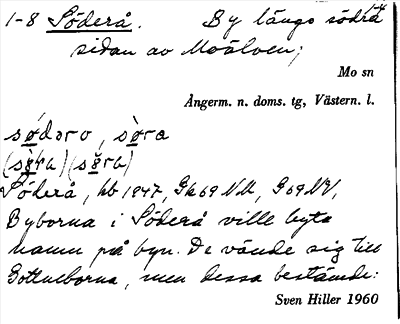 1-8 Söderå. By längs södra
1-4
sidan av Moälven;
Mo sn
Ångerm. n. doms. tg, Västern. l.
södərɷ, söra
(söra) (söra)
Söderå, hb 1847, Gk69NU, G69NV,
Byborna i Söderå ville byta
namn på byn. De vände sig till
Gottneborna, men dessa bestämde:
Sven Hiller 1960